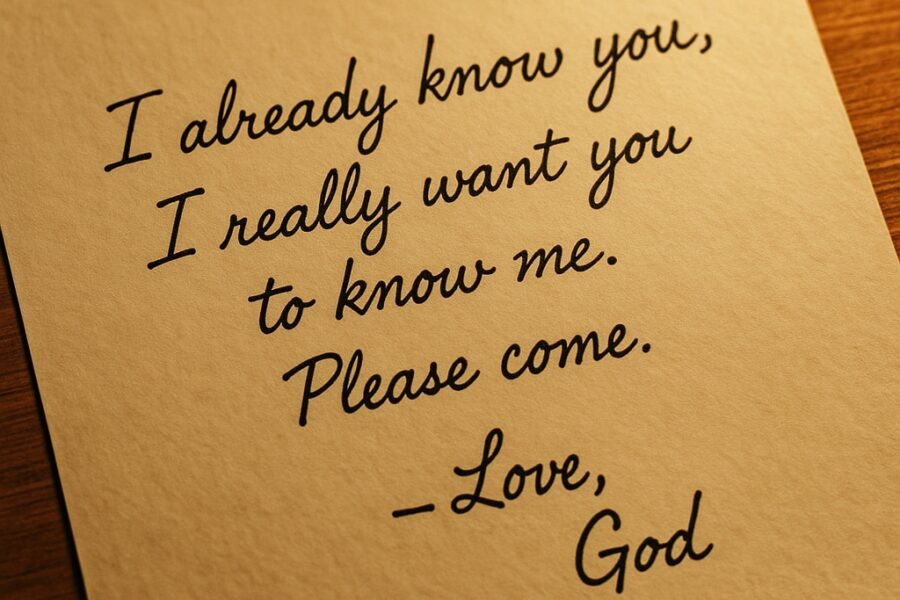 I already know you,
I really want you
to know me.
Please come.
– Love,
God